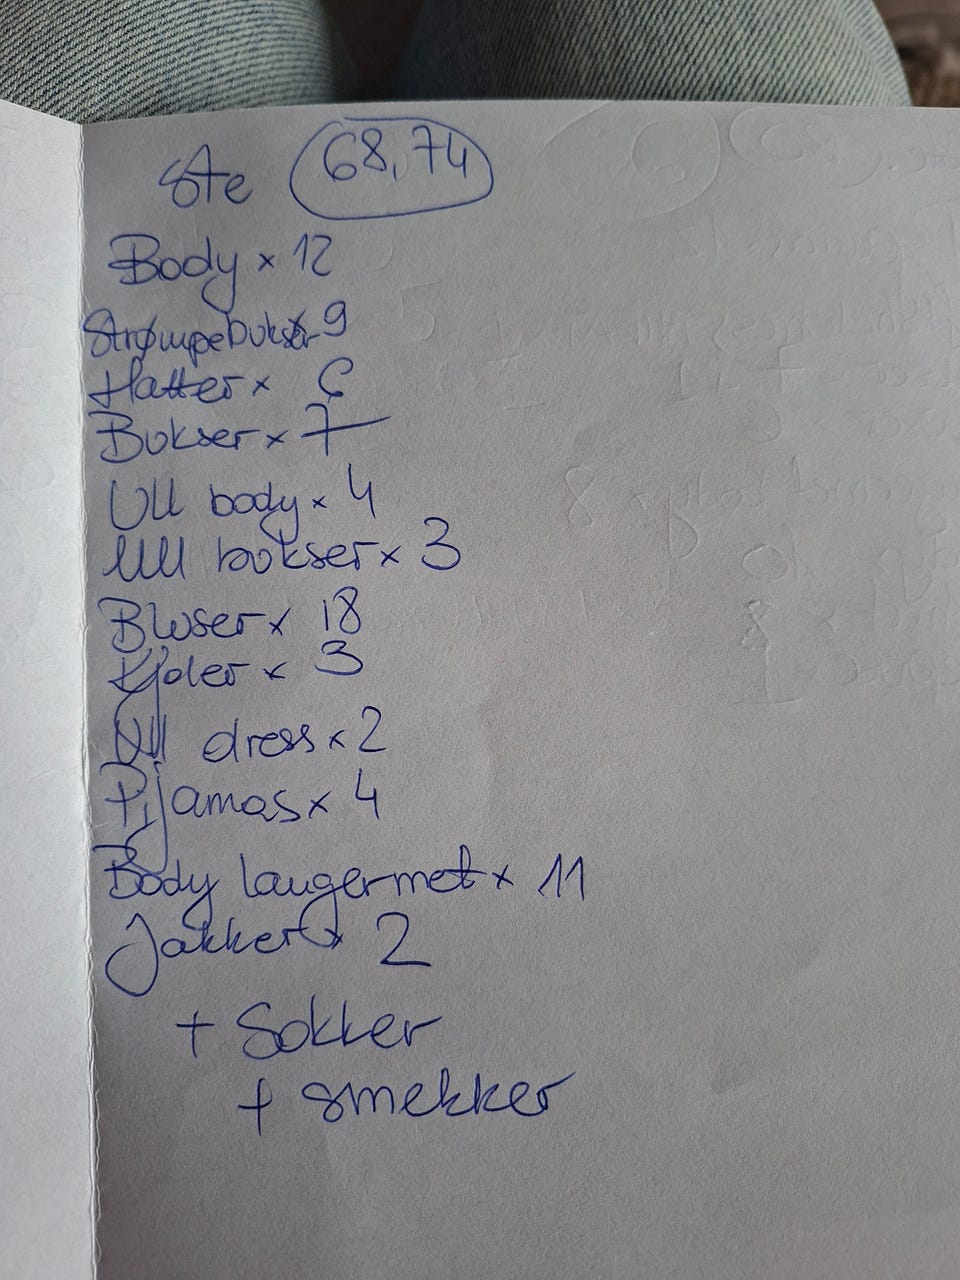 Ste 68,74
Body x 12
Strømpebukser x 9
Hatter x 6
Bukser x 7
Ull body x 4
Ull bukser x 3
Bluser x 18
Kjoler x 3
Ull dress x 2
Pijamas x 4
Body laugermet x 11
Jakker x 2
+ Sokker
+ smekker